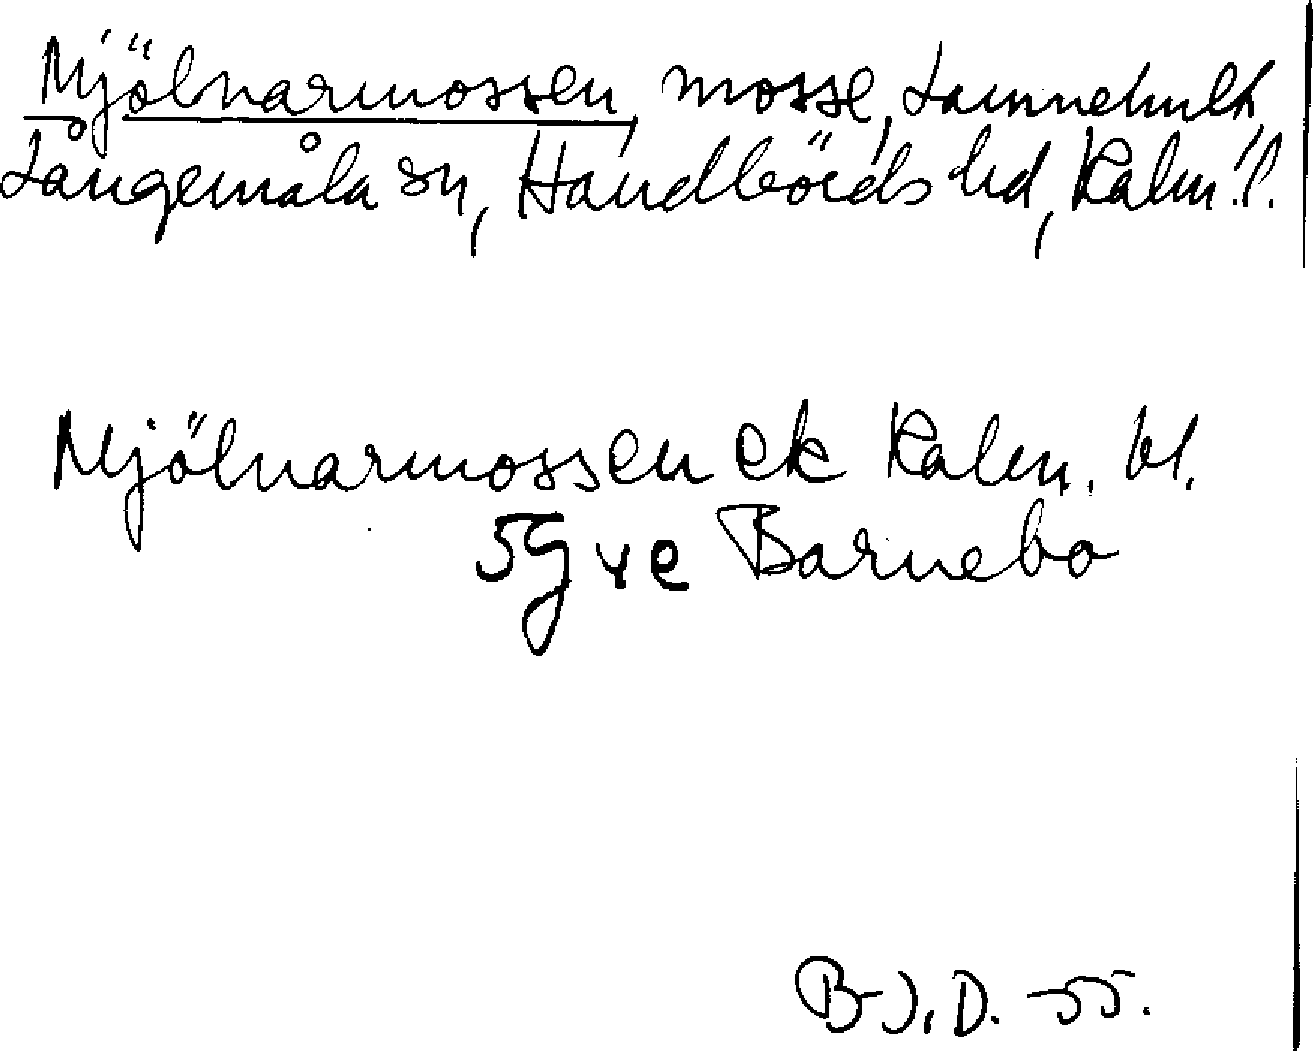 Mjölnarmossen, mosse, Lämnehult,
Långemåla sn, Handbörds hd, Kalm. l.
Mjölnarmossen ek Kalm. bl.
5G ve Barnebo
B-J. D. -55.